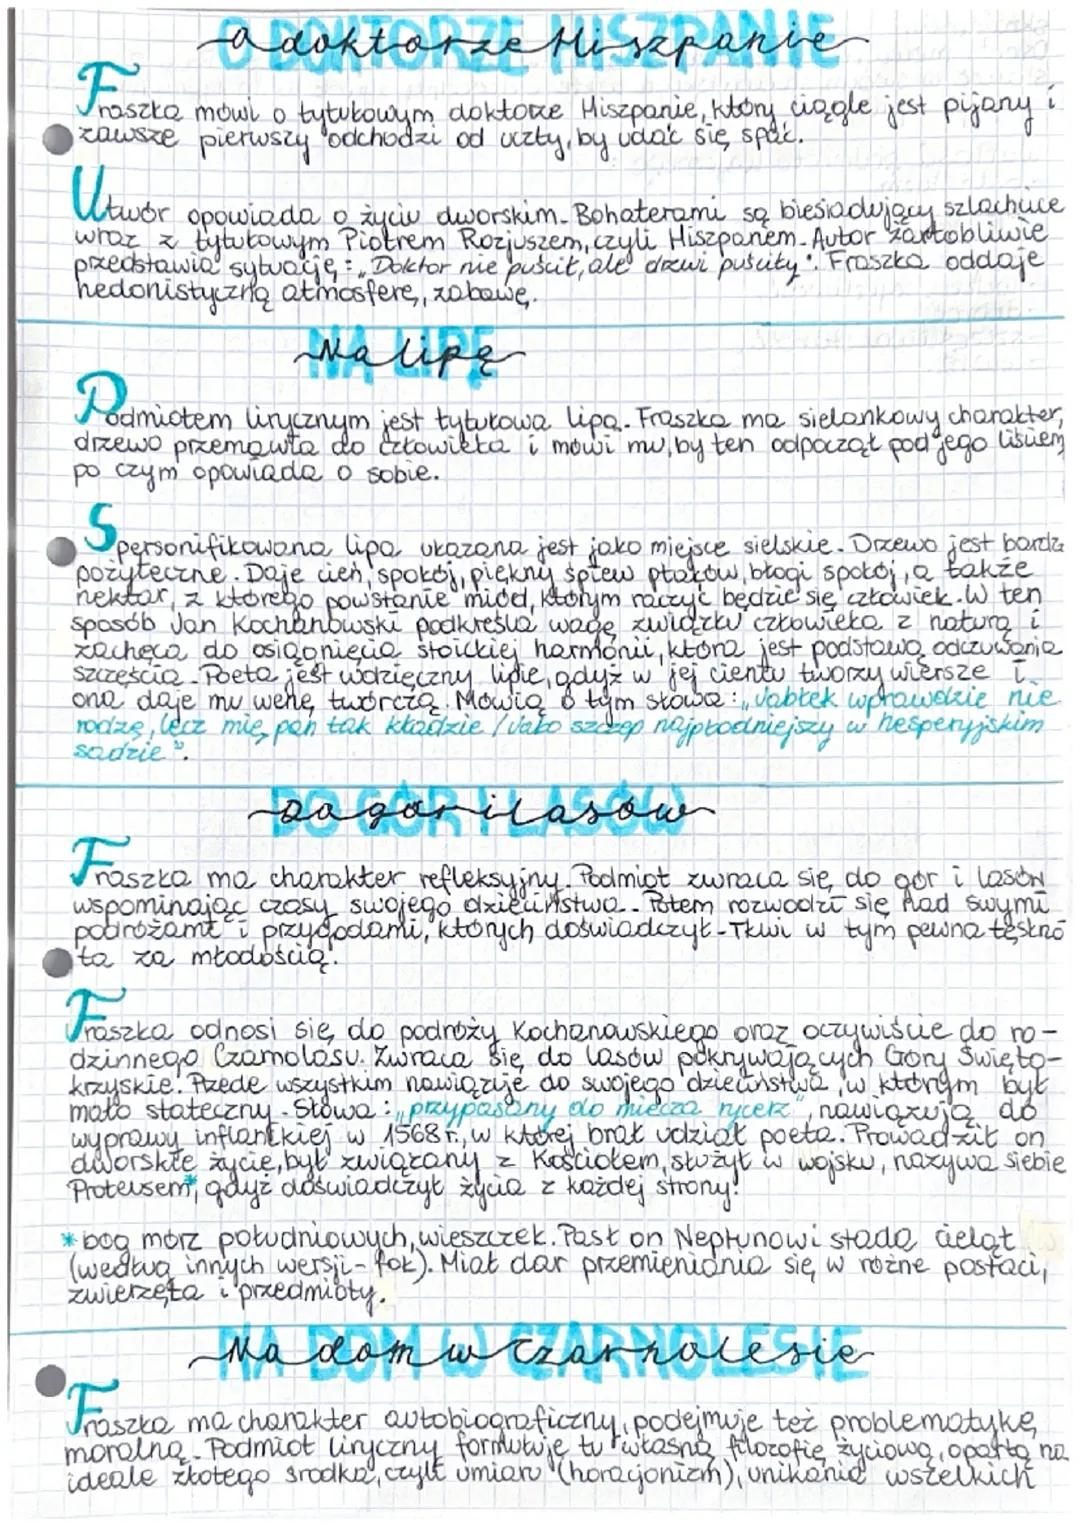 O doktorze Hiszpanie
Fraszka mówi o tytułowym doktorze Hiszpanie, który ciągle jest pijany i
zawsze pierwszy odchodzi od uczty, by udać się spać.
Utwór opowiada o życiu dworskim. Bohaterami są biesiadujący szlachcice
wraz z tytułowym Piotrem Rozjuszem, czyli Hiszpanem. Autor żartobliwie
przedstawia sytuację: „Doktor nie puścił, ale drzwi puściły". Fraszka oddaje
hedonistyczną atmosferę, zabawę.
Na lipę
Podmiotem lirycznym jest tytułowa lipa. Fraszka ma sielankowy charakter,
drzewo przemawia do człowieka i mówi mu, by ten odpoczął pod jego liściem
po czym opowiada o sobie.
Spersonifikowana lipa ukazana jest jako miejsce sielskie. Drzewo jest bardzo
pożyteczne. Daje cień, spokój, piękny śpiew ptaków, błogi spokój, a także
nektar, z którego powstanie miód, którym raczyć będzie się człowiek. W ten
sposób Jan Kochanowski podkreśla wagę związku człowieka z naturą i
zachęca do osiągnięcia stoickiej harmonii, która jest podstawą odczuwania
szczęścia. Poeta jest wdzięczny lipie, gdyż w jej cieniu tworzy wiersze i
ona daje mu wenę twórczą. Mówią o tym słowa: „Jabłek wprawdzie nie
rodzę, lecz mię pan tak kładzie / Jako szczep najpłodniejszy w hesperyjskim
sadzie".
Do gór i lasów
Fraszka ma charakter refleksyjny. Podmiot zwraca się do gór i lasów
wspominając czasy swojego dzieciństwa. Potem rozwodzi się nad swymi
podróżami i przygodami, których doświadczył. Tkwi w tym pewna tęskno
ta za młodością.
Fraszka odnosi się do podróży Kochanowskiego oraz oczywiście do ro-
dzinnego Czarnolasu. Zwraca się do lasów pokrywających Góry Święto-
krzyskie. Przede wszystkim nawiązuje do swojego dzieciństwa, w którym był
mało stateczny. Słowa: „przypasany do miecza rycerz", nawiązują do
wyprawy inflanckiej w 1568 r., w której brał udział poeta. Prowadził on
dworskie życie, był związany z Kościołem, służył w wojsku, nazywa siebie
Proteusem*, gdyż doświadczył życia z każdej strony.
* bóg mórz południowych, wieszczek. Pasł on Neptunowi stada cieląt
(według innych wersji - fok). Miał dar przemieniania się w różne postaci,
zwierzęta i przedmioty.
Na dom w Czarnolesie
Fraszka ma charakter autobiograficzny, podejmuje też problematykę
moralną. Podmiot liryczny formułuje tu własną filozofię życiową, opartą na
ideale złotego środka, czyli umiaru (horacjonizm), unikania wszelkich